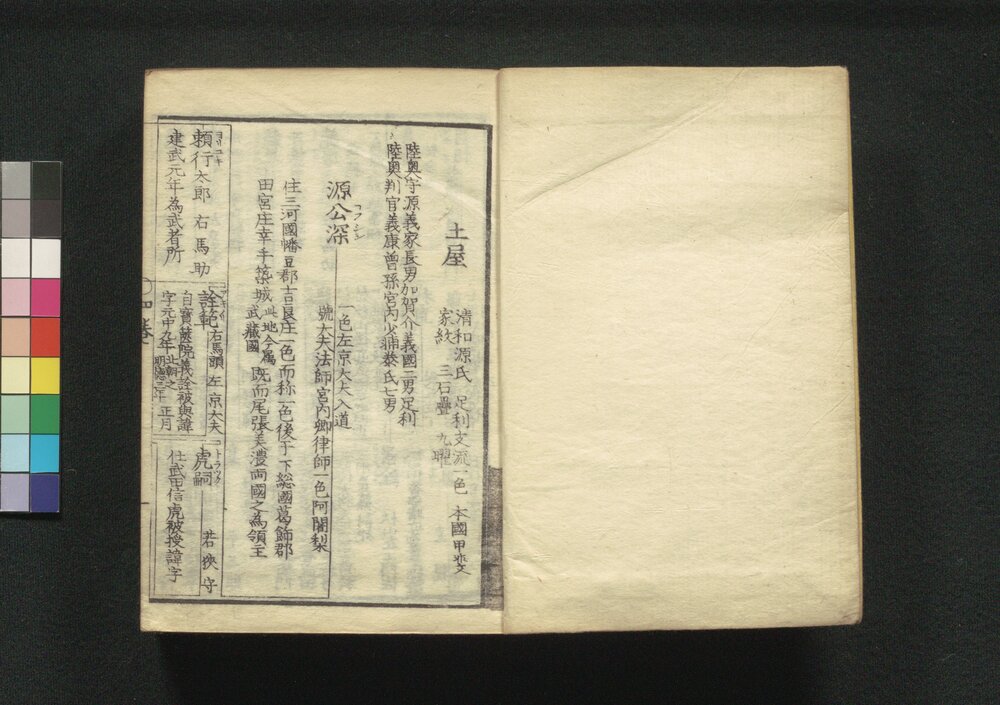 土屋
清和源氏 足利支流一色 本國甲斐
家紋 三石疊 九曜
陸奥守源義家長男加賀介義國二男足利
陸奥判官義康曽孫宮内少輔泰氏七男
源公深
コフシン
一色左京大夫入道
號大夫法師宮内卿律師一色阿闍梨
住三河國幡豆郡吉良庄一色而称一色後于下総國葛飾郡
田宮庄幸手築城 此地今属 武藏國 既而尾張美濃両國之為領主
頼行太郎 右馬助
建武元年為武者所
詮範 右馬頭 左京大夫
自寳篋院義詮被與諱
字元中九年 北朝之 明徳三年 正月
虎嗣 若狭守
トラツグ
仕武田信虎被授諱字
四巻